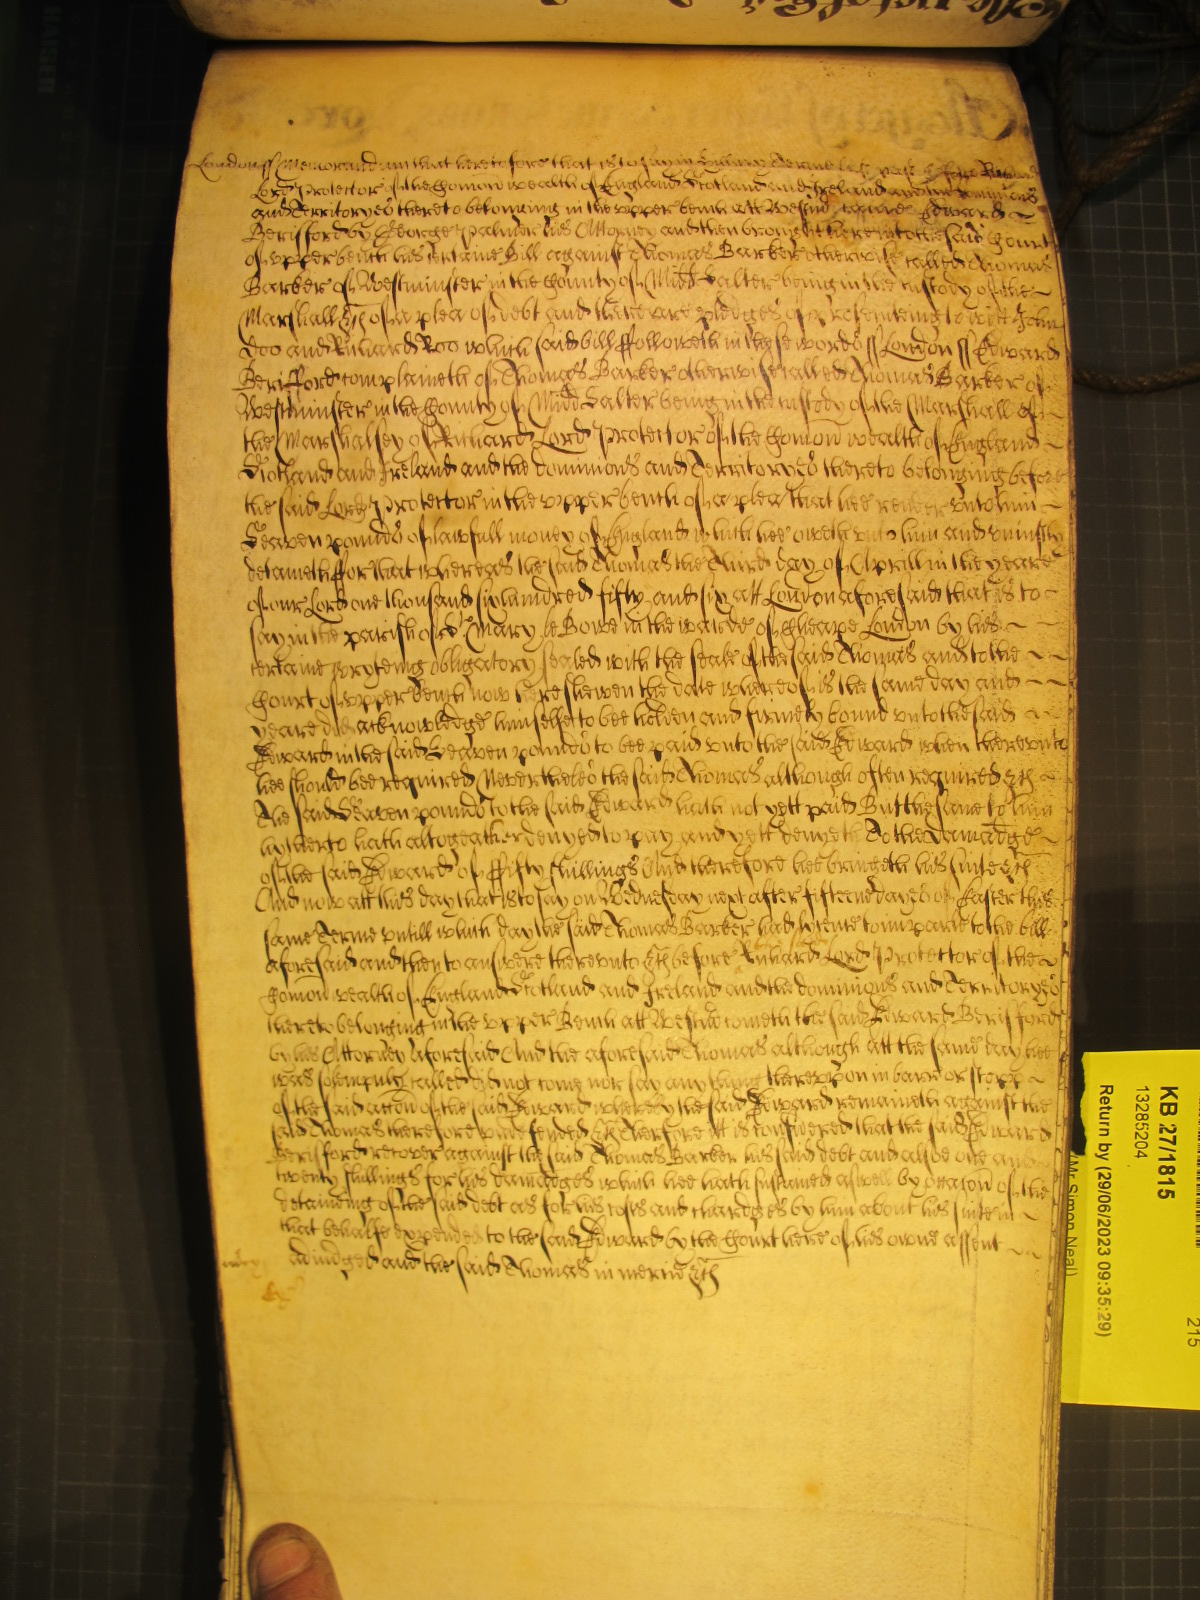 London ss Memorandum that heretofore that is to say in Hillary Terme last past before Richard
Lord Protector of the Comon wealth of England Scotland and Ireland and the dominions
and Territoryes thereto belonging in the vpper bench att Westm̃ came Edward
Berisford by George Palmer his Attorney and then brought here into the said Court
of vpper bench his certaine Bill against Thomas Barker otherwise called Thomas
Barker of Westminster in the County of Midd Salter being in the custody of the
Marshall &c of a plea of debt and there are pledges of prosecuteing to witt John
Doo and Richard Roo which said bill ffolloweth in these words ss London ss Edward
Berifford complaineth of Thomas Barker otherwise called Thomas Barker of
Westminster in the County of Midd Salter being in the custody of the Marshall of
the Marshalsey of Richard Lord Protector of the Comon wealth of England
Scotland and Ireland and the dominions and Territoryes thereto belonging before
the said Lord Protector in the vpper bench of a plea that hee render vnto him
Seaven pounds of lawfull money of England which hee oweth vnto him and vniustly
detaineth ffor that whereas the said Thomas the Third day of Aprill in the yeare
of our Lord one thousand six hundred fifty and six att London aforesaid that is to
say in the parish of St Mary le Bowe in the warde of Cheape London by his
certaine wryteing obligatory sealed with the seale of the said Thomas and to the
Court of vpper bench now here shewen the date whereof is the same day and
yeare did acknowledge himselfe to bee holden and firmely bound vnto the said
Edward in the said Seaven pounds to bee paid vnto the said Edward when therevnto
hee should bee required Nevertheles the said Thomas although often required &c
The said Seaven pounds to the said Edward hath not yett paid But the same to him
hytherto hath altogeather denyed to pay and yett denyeth To the damadge
of the said Edward of ffifty shillings And therefore hee bringeth his suite &c
And now att this day that is to say on Wednesday next after fifteene dayes of Easter this
same Terme vntill which day the said Thomas Barker had lycence to imparle to the bill
aforesaid and then to answere therevnto &c before Richard Lord Protector of the
Comon wealth of England Scotland and Ireland and the dominions and Territoryes
thereto belonging in the vpper Bench att Westm̃ cometh the said Edward Berisfford
by his Attorney aforesaid And the aforesaid Thomas although att the same day hee
was solempnly called did not come nor say any thing therevpon in barr or stopp
of the said accon of the said Edward whereby the said Edward remaineth against the
said Thomas therefore vndefended &c Therfore itt is considered that the said Edward
Berisford recover against the said Thomas Barker his said debt and alsoe one and
twenty shillings for his damadges which hee hath sustained aswell by occasion of the
detaineing of the said debt as for his costs and chardges by him about his suite in
that behalfe expended to the said Edward by the Court here of his owne assent
adiudged and the said Thomas in mercie &c
KB 27/1815
13285204
Return by (29/06/2023 09:35:29)
(Mr Simon Neal)
215